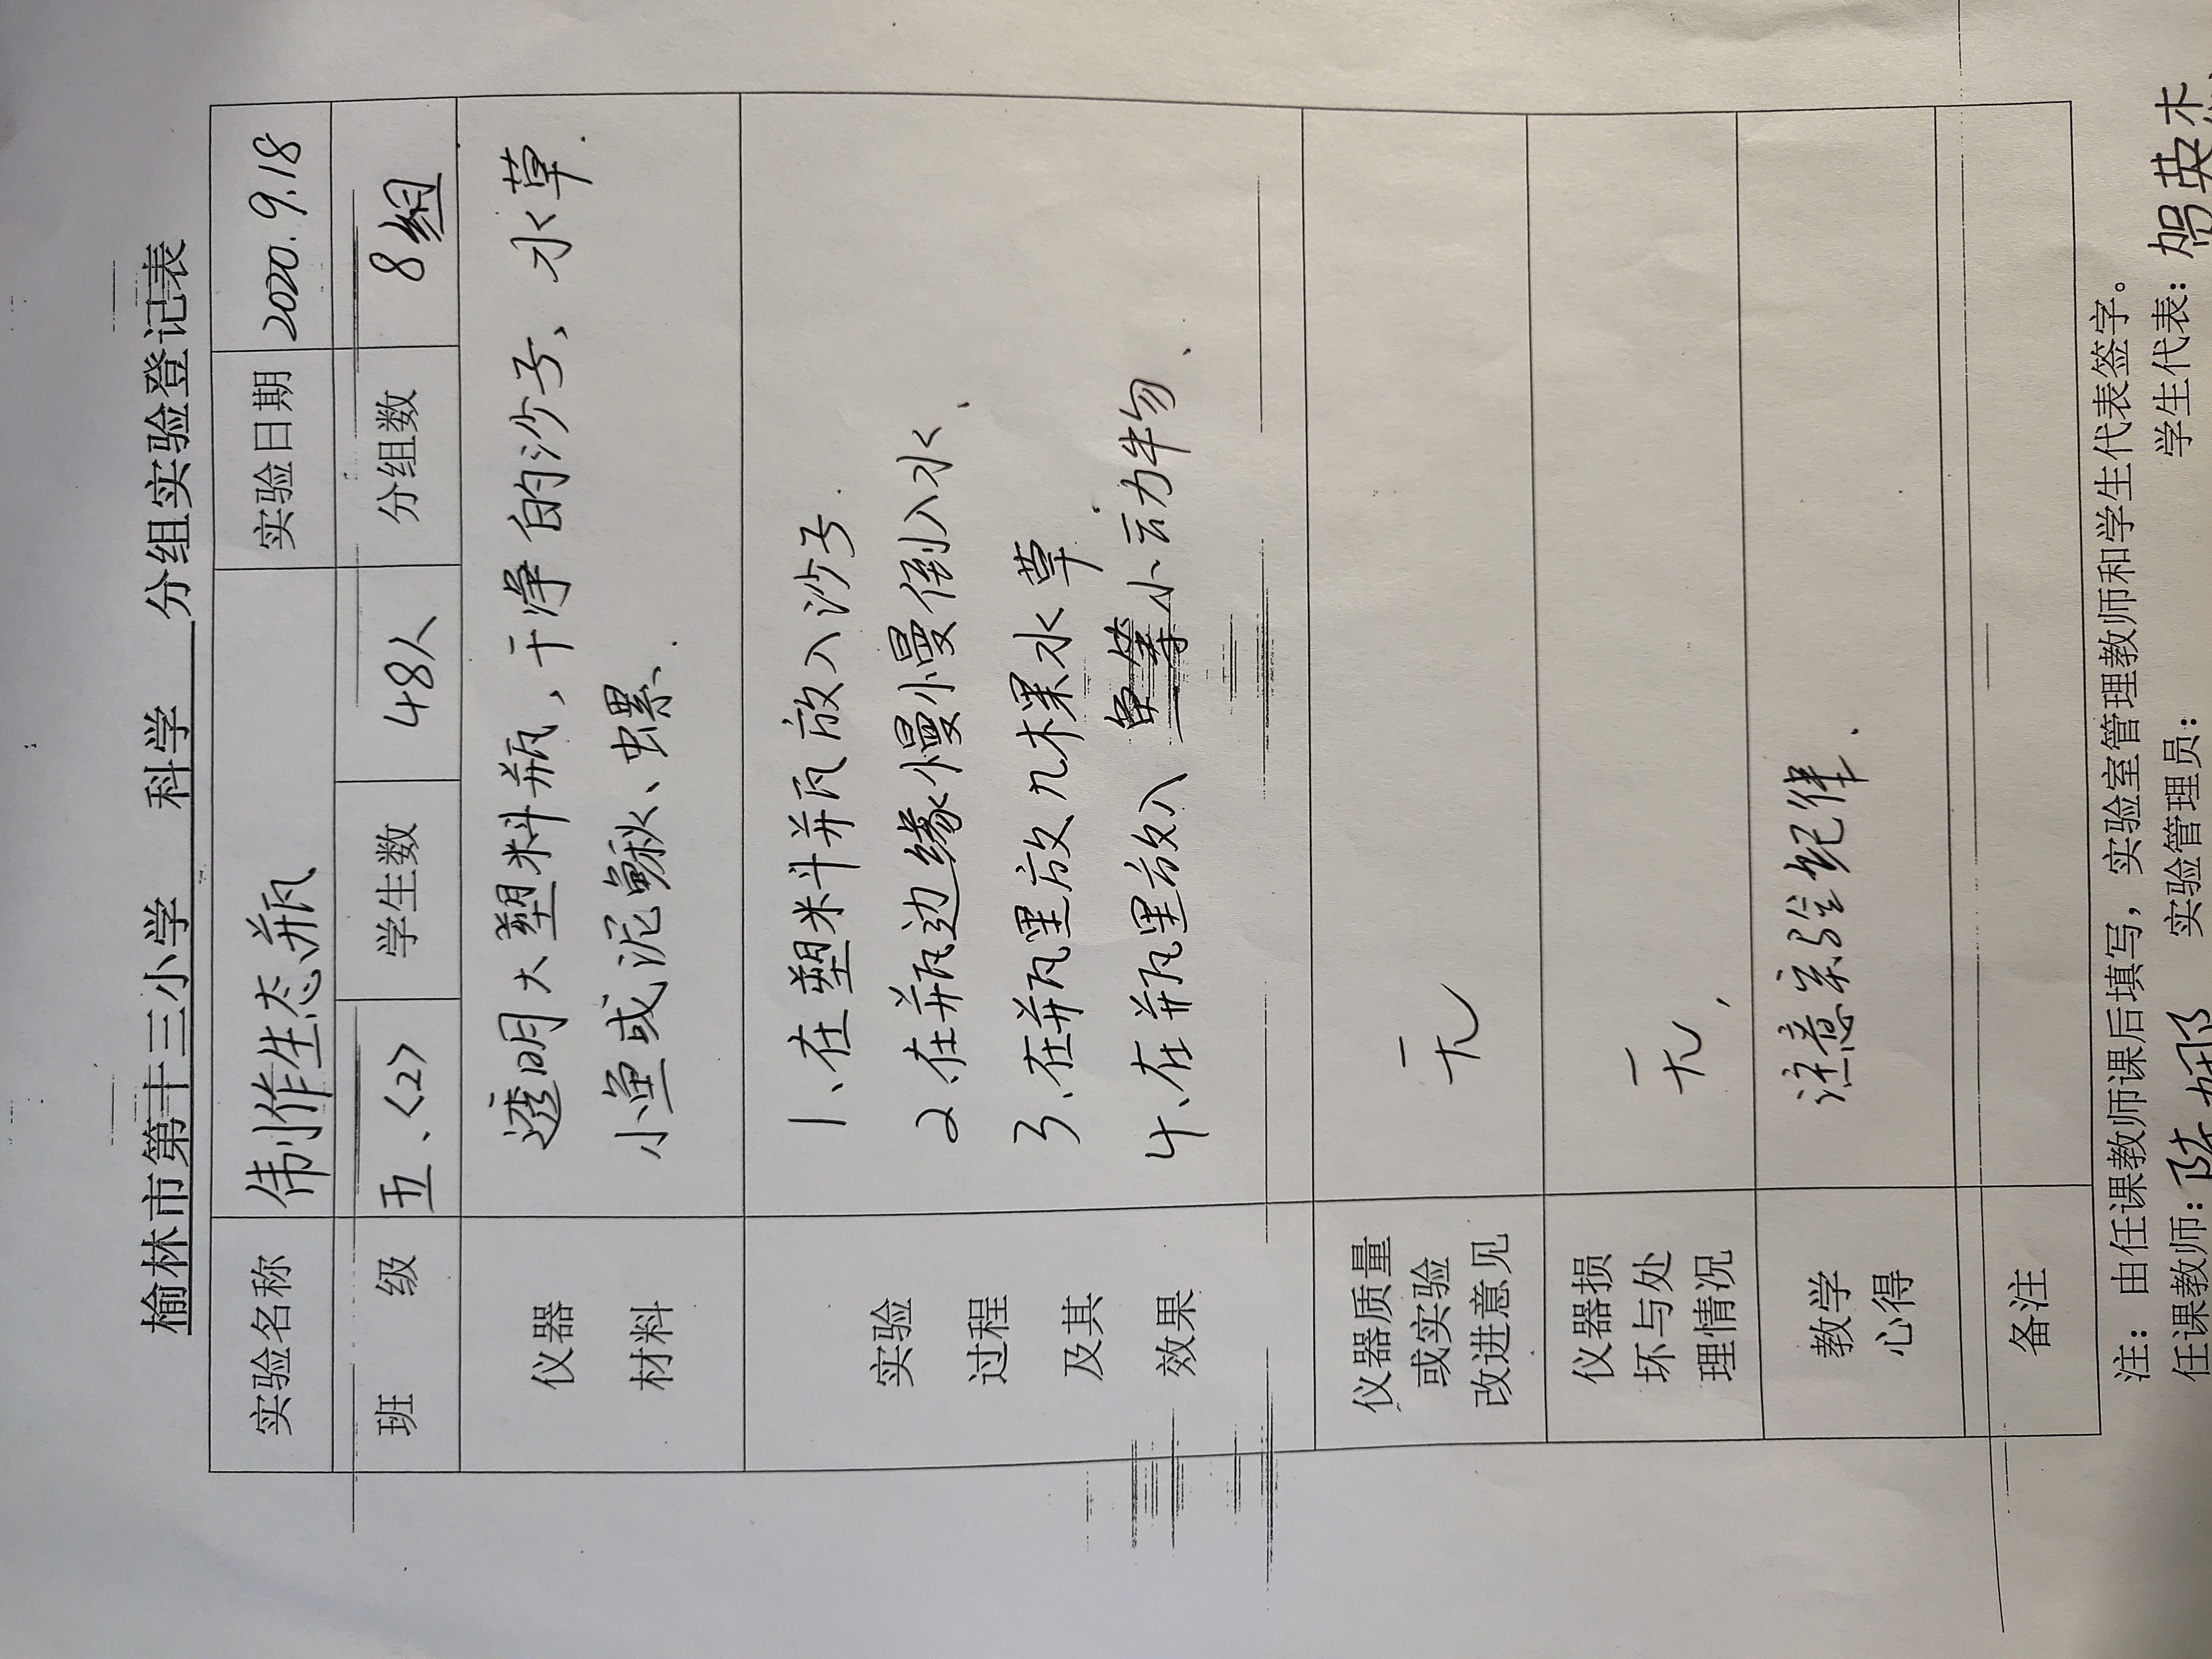 榆林市第十三小学 科学 分组实验登记表
实验名称 制作生态瓶 实验日期 2020.9.18
班 级 五、<2> 学生数 48人 分组数 8组
仪器
材料
透明大塑料瓶,干净的沙子、水草.
小鱼或泥鳅、螺.
实验
过程
及其
效果
1、在塑料瓶放入沙子.
2、在瓶边缘慢慢倒入水、
3、在瓶里放几棵水草.
4、在瓶里放入 鱼等小动物.
仪器质量
或实验
改进意见
无
仪器损
坏与处
理情况
无,
教学
心得
注意实验纪律.
备注
注:由任课教师课后填写,实验室管理教师和学生代表签字。
任课教师:陈 实验管理员: 学生代表:贺英